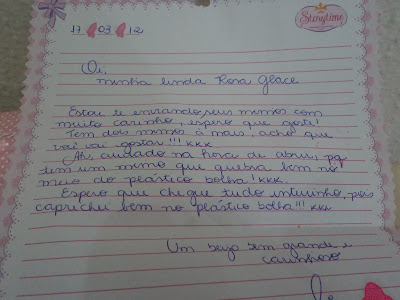 Storytime
17 03 12
Oi,
minha linda Rosa Glace
Estou te enviando seus mimos com
muito carinho, espero que goste!
Tem dois mimos à mais, acho que
vai vai gostar!!! kkk
Ah, cuidado na hora de abrir, pq
tem um mimo que quebra bem no
meio do plástico bolha! kkk
Espero que chegue tudo inteirinho, pois
caprichei bem no plástico bolha!!! kkk
Um beijo bem grande e
carinhoso